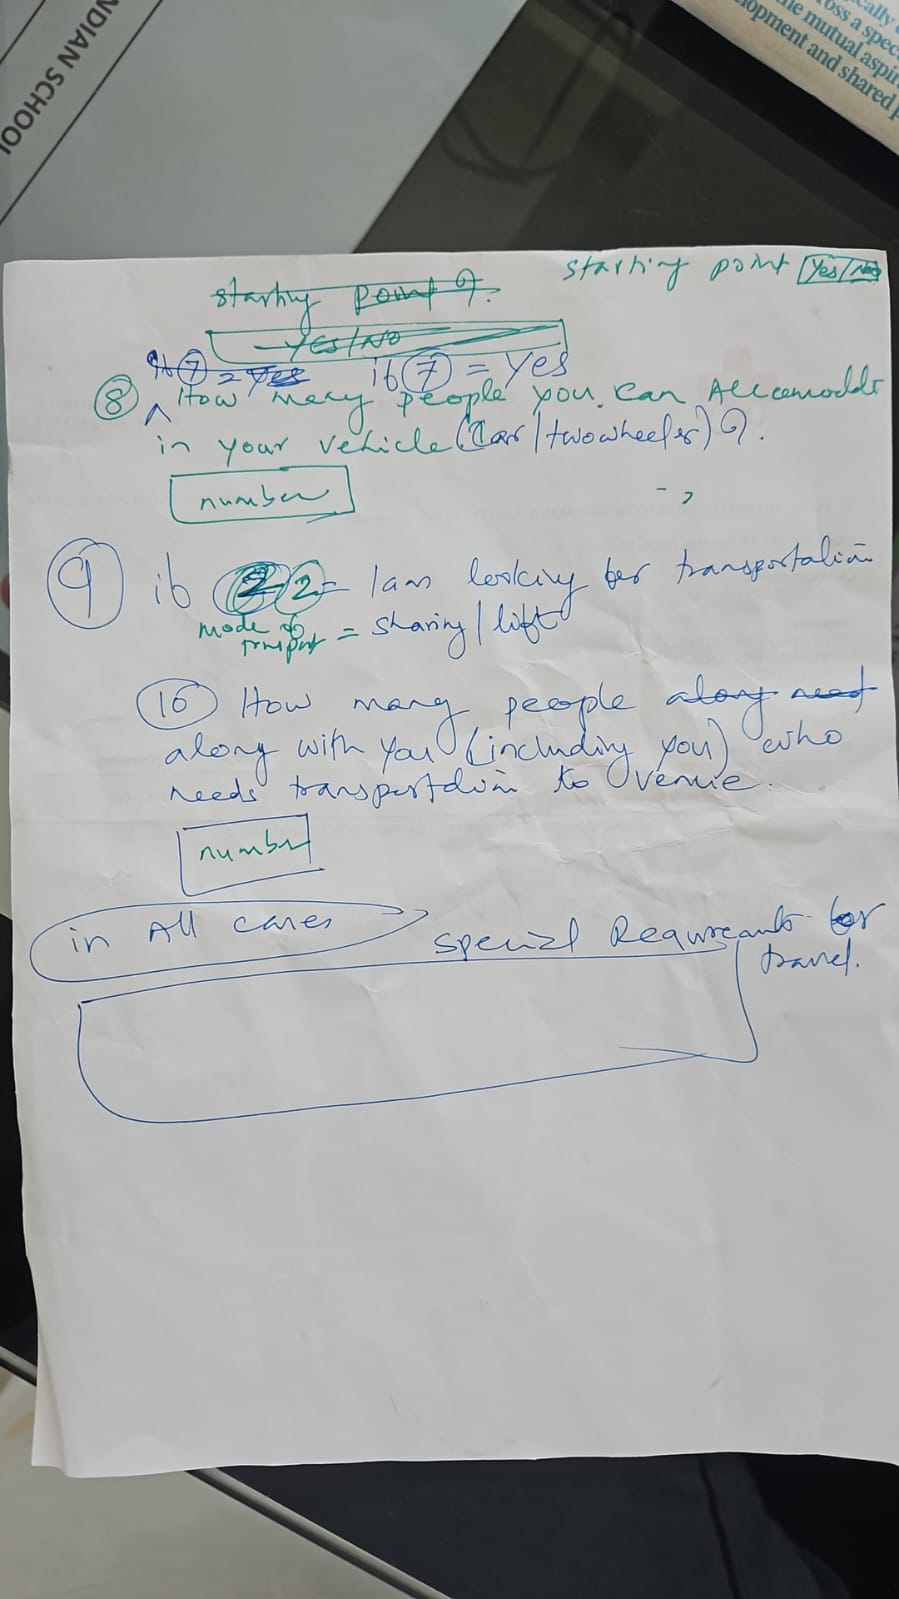 INDIAN SCHOOL
ically
ross a spec
he mutual aspir
lopment and shared p
starting point ?.
starting point Yes/No
YES/NO
if 7 = Yes if 7 = Yes
8 How many people you can Accomodate
in your vehicle (Car/twowheeler) ?.
number
9 if 2 2 = I am looking for transportation
mode of transport = sharing/lift
10 How many people along need
along with you (including you) who
needs transportation to venue.
number
in All cases
special Requirements for
travel.